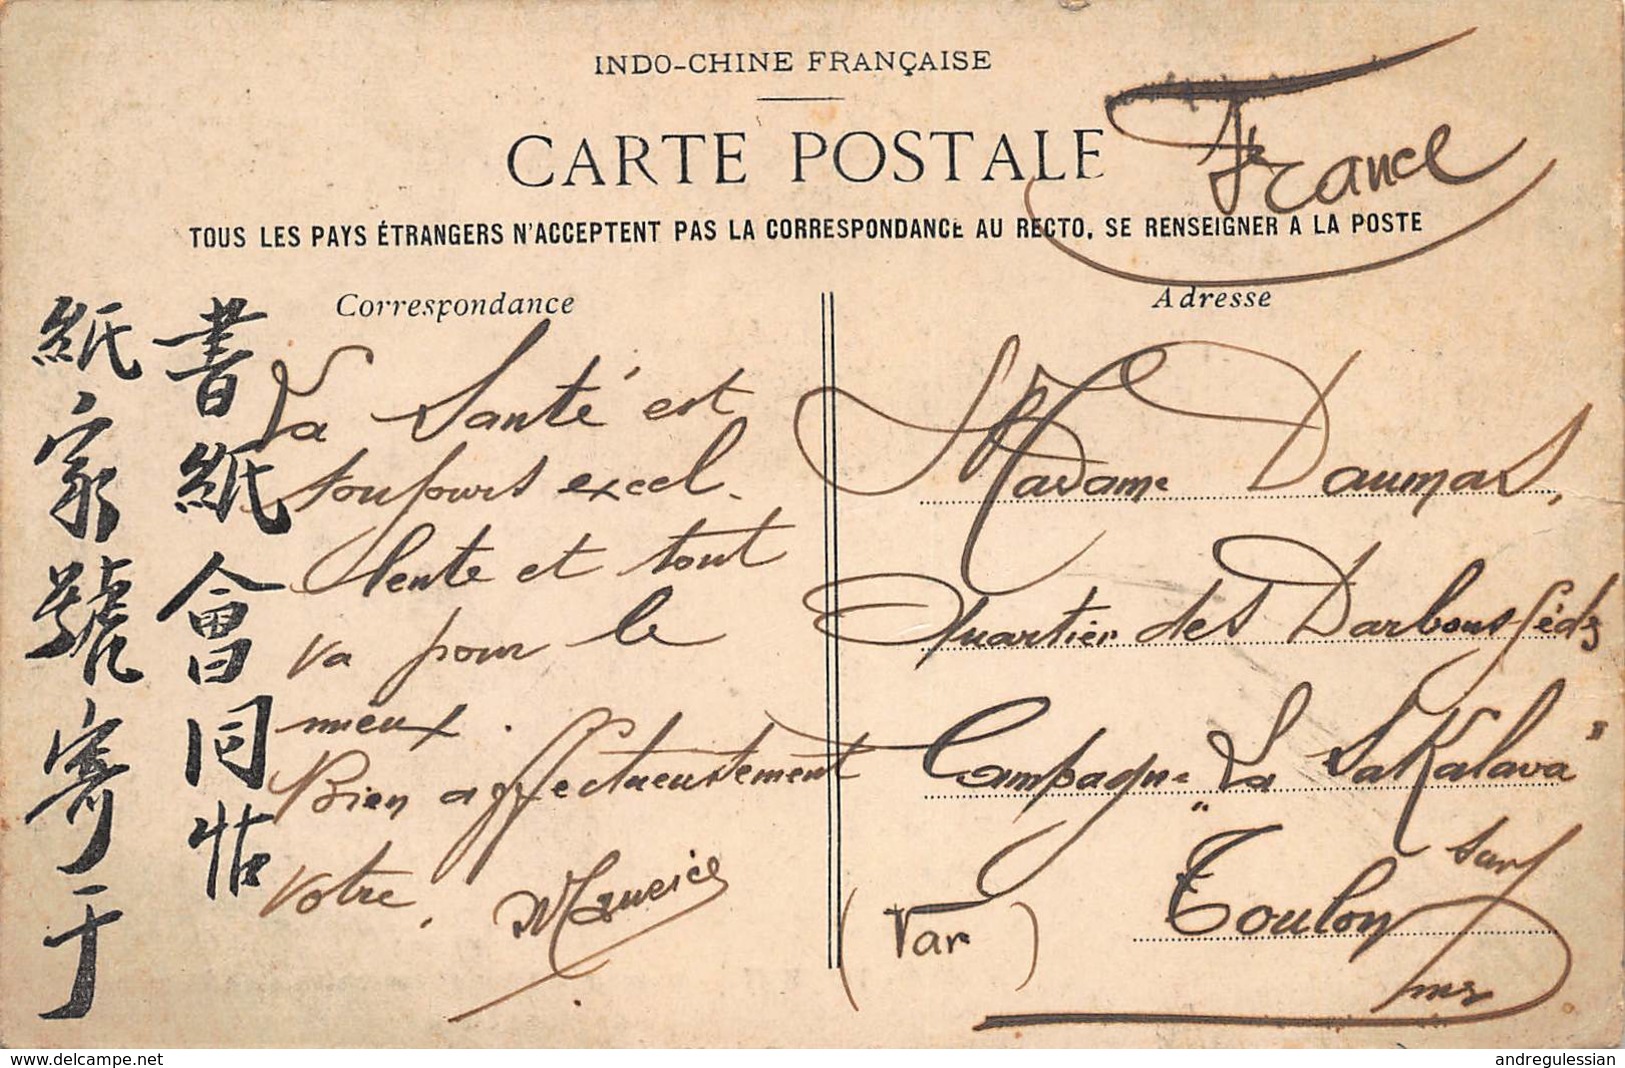 INDO-CHINE FRANÇAISE
CARTE POSTALE
France
TOUS LES PAYS ÉTRANGERS N'ACCEPTENT PAS LA CORRESPONDANCE AU RECTO, SE RENSEIGNER A LA POSTE
Correspondance
書紙會同怗
紙家號寄于
La Santé est
toujours excel-
lente et tout
va pour le
mieux.
Bien affectueusement
votre,
Maurice
Adresse
Madame Daumas,
Quartier des Darboussèdes
Campagne "La Sakalava"
sur
Toulon
mer
(Var)
delcampe.net
andregulessian